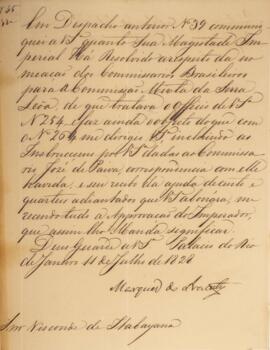 Em Despacho anterior Nº 39 communi
quei a VSª quanto Sua Magestade Im
perial Ha Resolvido a respeito da no
meação dos Commissarios Brasileiros
para a Commissão Mixta da Serra
Leôa de que tratava o Officio de VSª
Nº 254, e faz ainda o objecto do que com
o Nº 264 me dirigio VSª, incluindo as
Instrucçoens por VSª dadas ao Commissa
rio José de Paiva, correspondencia com elle
havida, e seu recibo da ajuda de custo e
quarteis adiantados que VSª abonou, me
recendo tudo a Approvação do Imperador,
que assim Me Manda significar.
Deus Guarde a VSª Palacio do Rio
de Janeiro 11 de Julho de 1828
Marquez de Aracaty
Snr Visconde de Itabayana